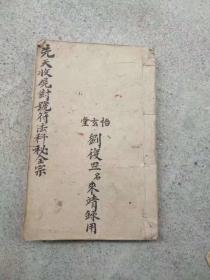 先天收魂封號符法科秘全宗
怡玄堂
劉復旦名來靖錄用